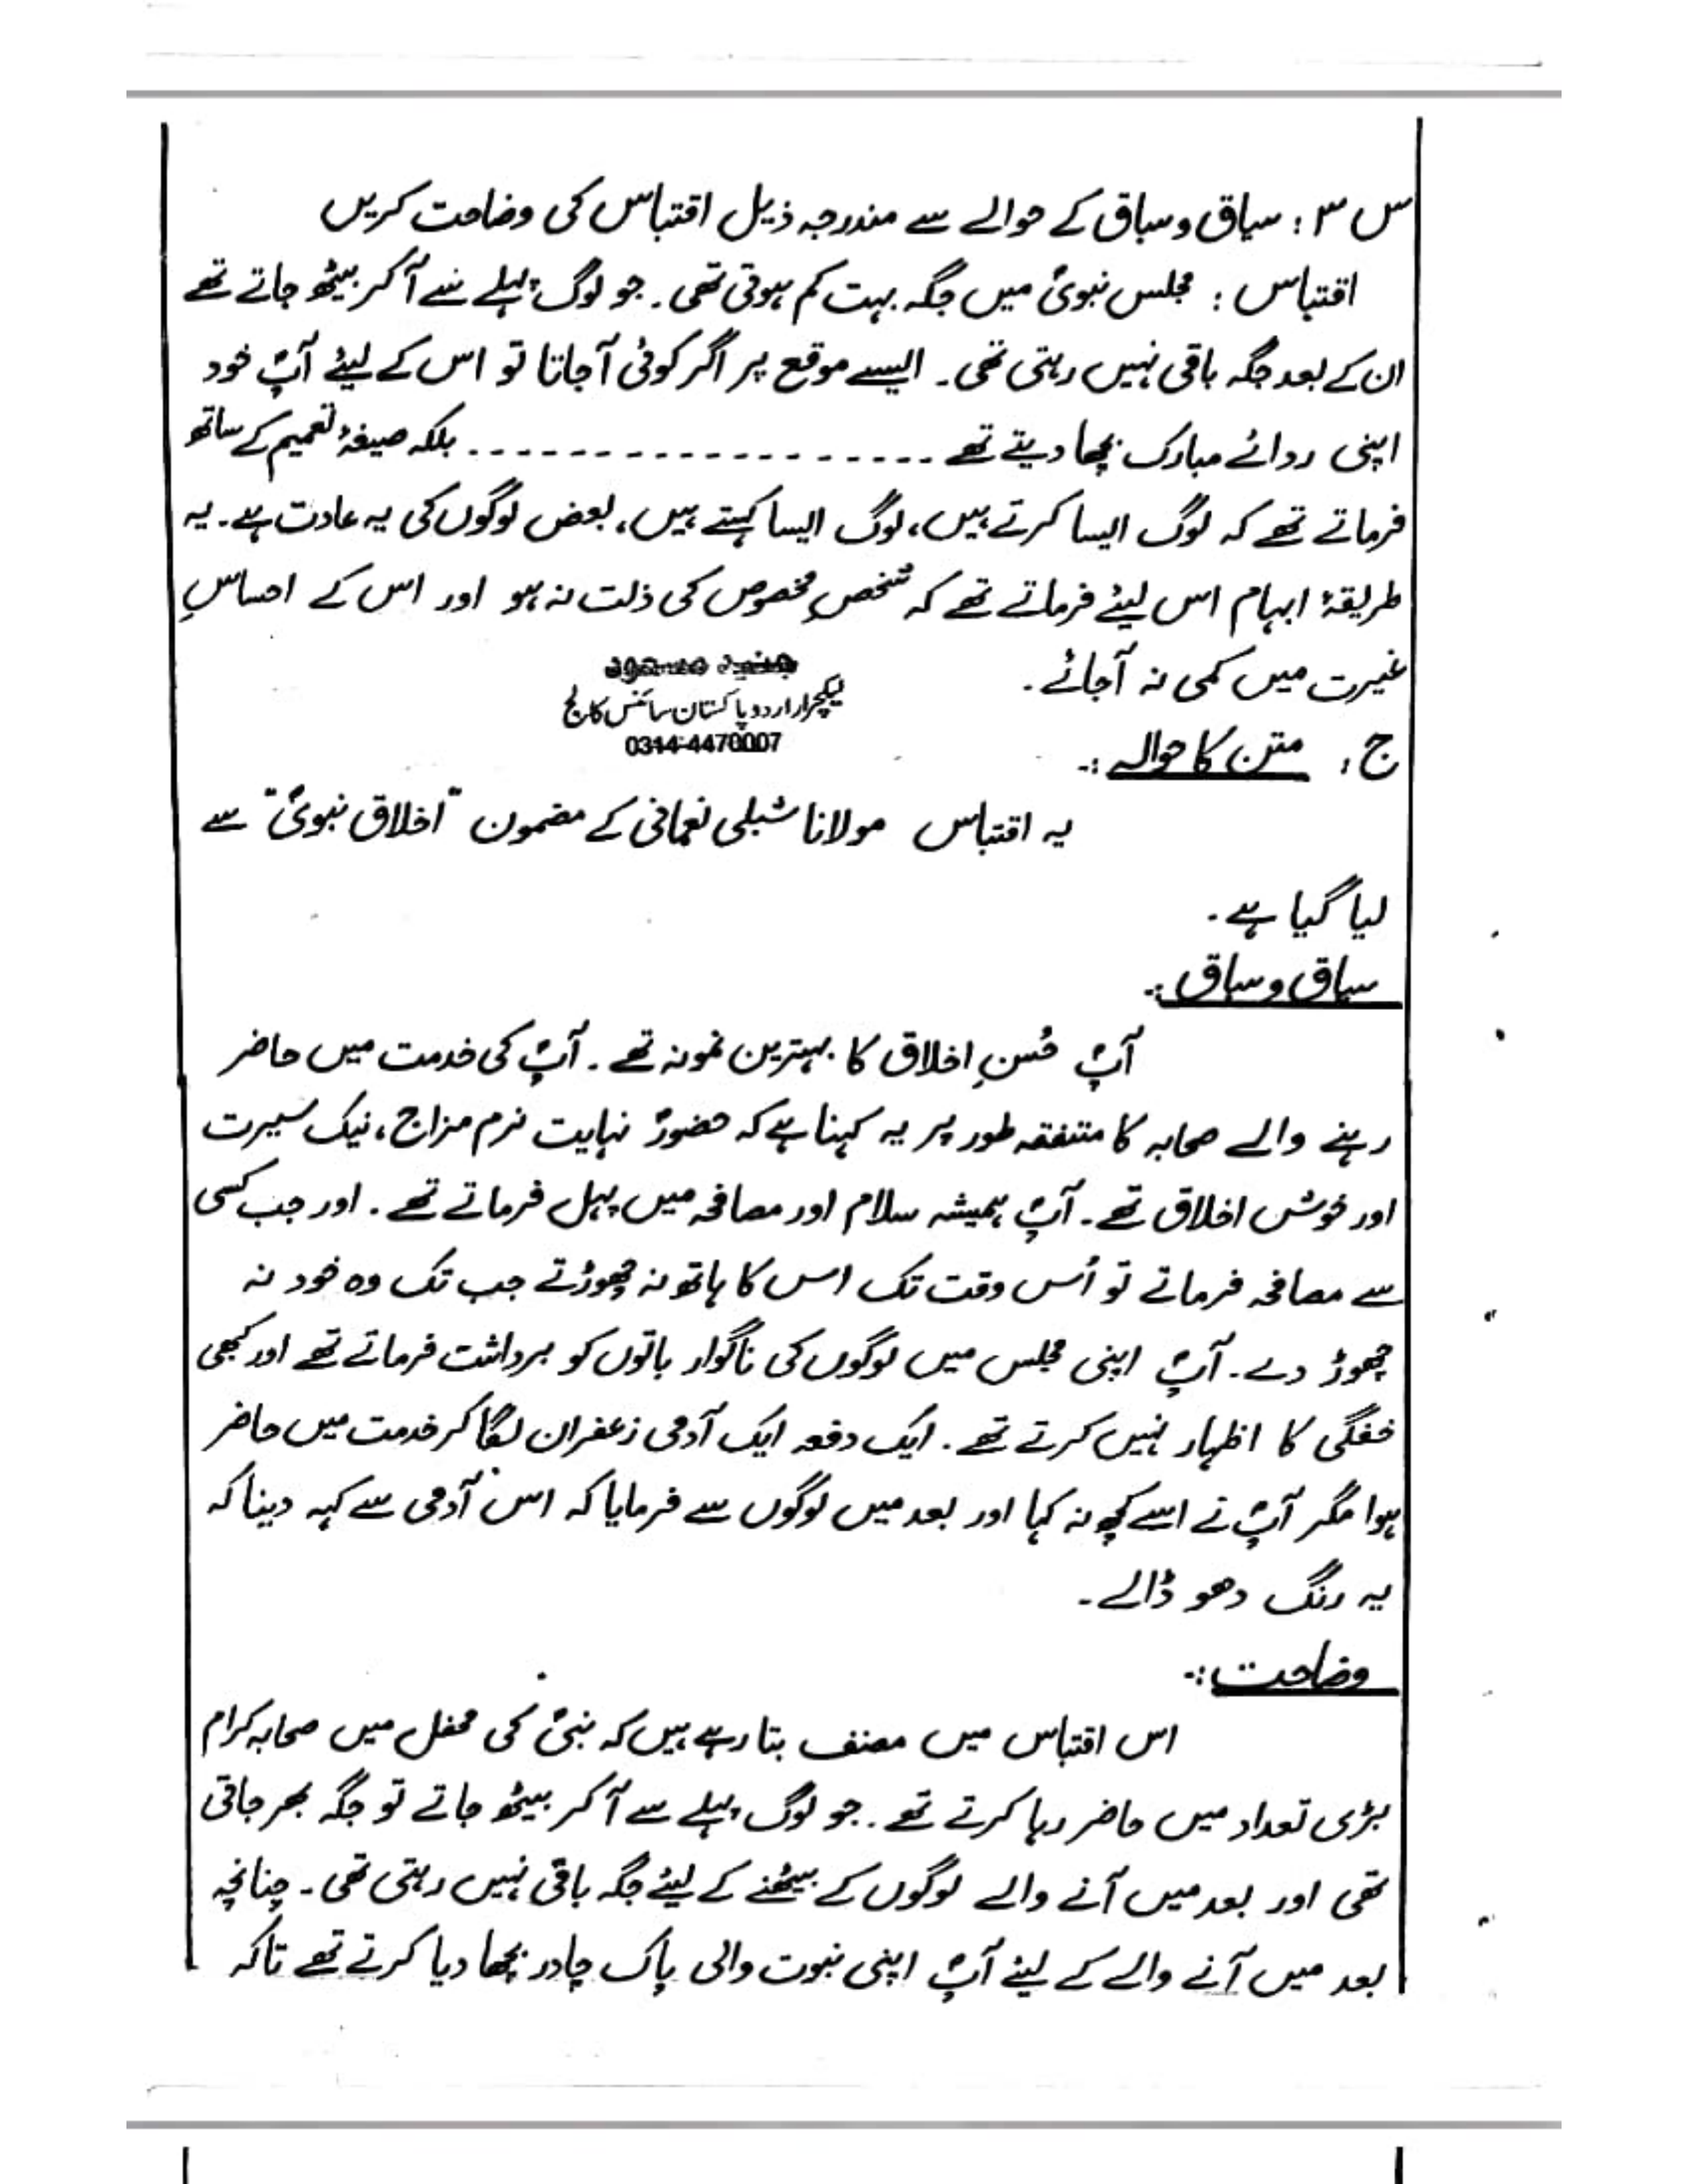 س ۳ : سیاق و سباق کے حوالے سے مندرجہ ذیل اقتباس کی وضاحت کریں
اقتباس : مجلس نبویؐ میں جگہ بہت کم ہوتی تھی۔ جو لوگ پہلے سے آ کر بیٹھ جاتے تھے
ان کے بعد جگہ باقی نہیں رہتی تھی۔ ایسے موقع پر اگر کوئی آ جاتا تو اس کے لیئے آپؐ خود
اپنی ردائے مبارک بچھا دیتے تھے ------------------- بلکہ صیغۂ تعمیم کے ساتھ
فرماتے تھے کہ لوگ ایسا کرتے ہیں، لوگ ایسا کہتے ہیں، بعض لوگوں کی یہ عادت ہے۔ یہ
طریقۂ ابہام اس لیئے فرماتے تھے کہ شخصِ مخصوص کی ذلت نہ ہو اور اس کے احساسِ
غیرت میں کمی نہ آجائے۔
لیکچرار اردو پاکستان سائنس کالج
0314-4470007
ج : متن کا حوالہ :-
یہ اقتباس مولانا شبلی نعمانی کے مضمون "اخلاق نبویؐ" سے
لیا گیا ہے۔
سیاق و سباق :-
آپؐ حُسنِ اخلاق کا بہترین نمونہ تھے۔ آپؐ کی خدمت میں حاضر
رہنے والے صحابہ کا متفقہ طور پر یہ کہنا ہے کہ حضورؐ نہایت نرم مزاج، نیک سیرت
اور خوش اخلاق تھے۔ آپؐ ہمیشہ سلام اور مصافحہ میں پہل فرماتے تھے۔ اور جب کسی
سے مصافحہ فرماتے تو اُس وقت تک اس کا ہاتھ نہ چھوڑتے جب تک وہ خود نہ
چھوڑ دے۔ آپؐ اپنی مجلس میں لوگوں کی ناگوار باتوں کو برداشت فرماتے تھے اور کبھی
خفگی کا اظہار نہیں کرتے تھے۔ ایک دفعہ ایک آدمی زعفران لگا کر خدمت میں حاضر
ہوا مگر آپؐ نے اسے کچھ نہ کہا اور بعد میں لوگوں سے فرمایا کہ اس آدمی سے کہہ دینا کہ
یہ رنگ دھو ڈالے۔
وضاحت :-
اس اقتباس میں مصنف بتا رہے ہیں کہ نبیؐ کی محفل میں صحابہ کرام
بڑی تعداد میں حاضر رہا کرتے تھے۔ جو لوگ پہلے سے آ کر بیٹھ جاتے تو جگہ بھر جاتی
تھی اور بعد میں آنے والے لوگوں کے بیٹھنے کے لیئے جگہ باقی نہیں رہتی تھی۔ چنانچہ
بعد میں آنے والے کے لیئے آپؐ اپنی نبوت والی پاک چادر بچھا دیا کرتے تھے تاکہ